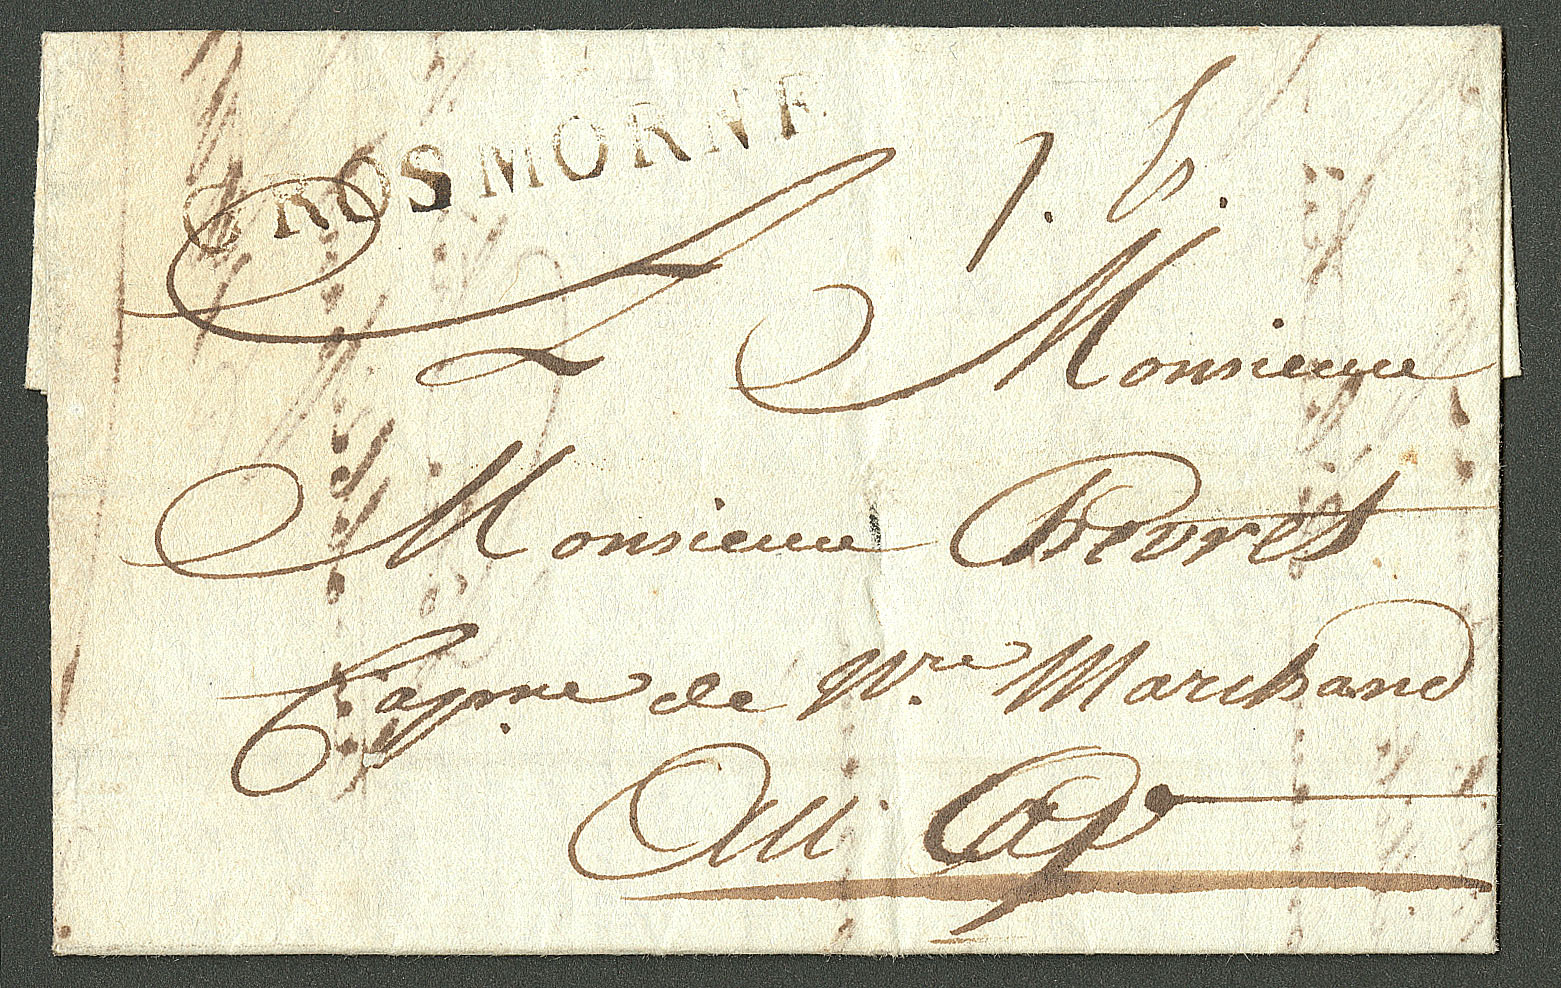 GROSMORNE
A
Monsieur
Monsieur Prevost
Cap.ne de N.re Marchand
Au Cap